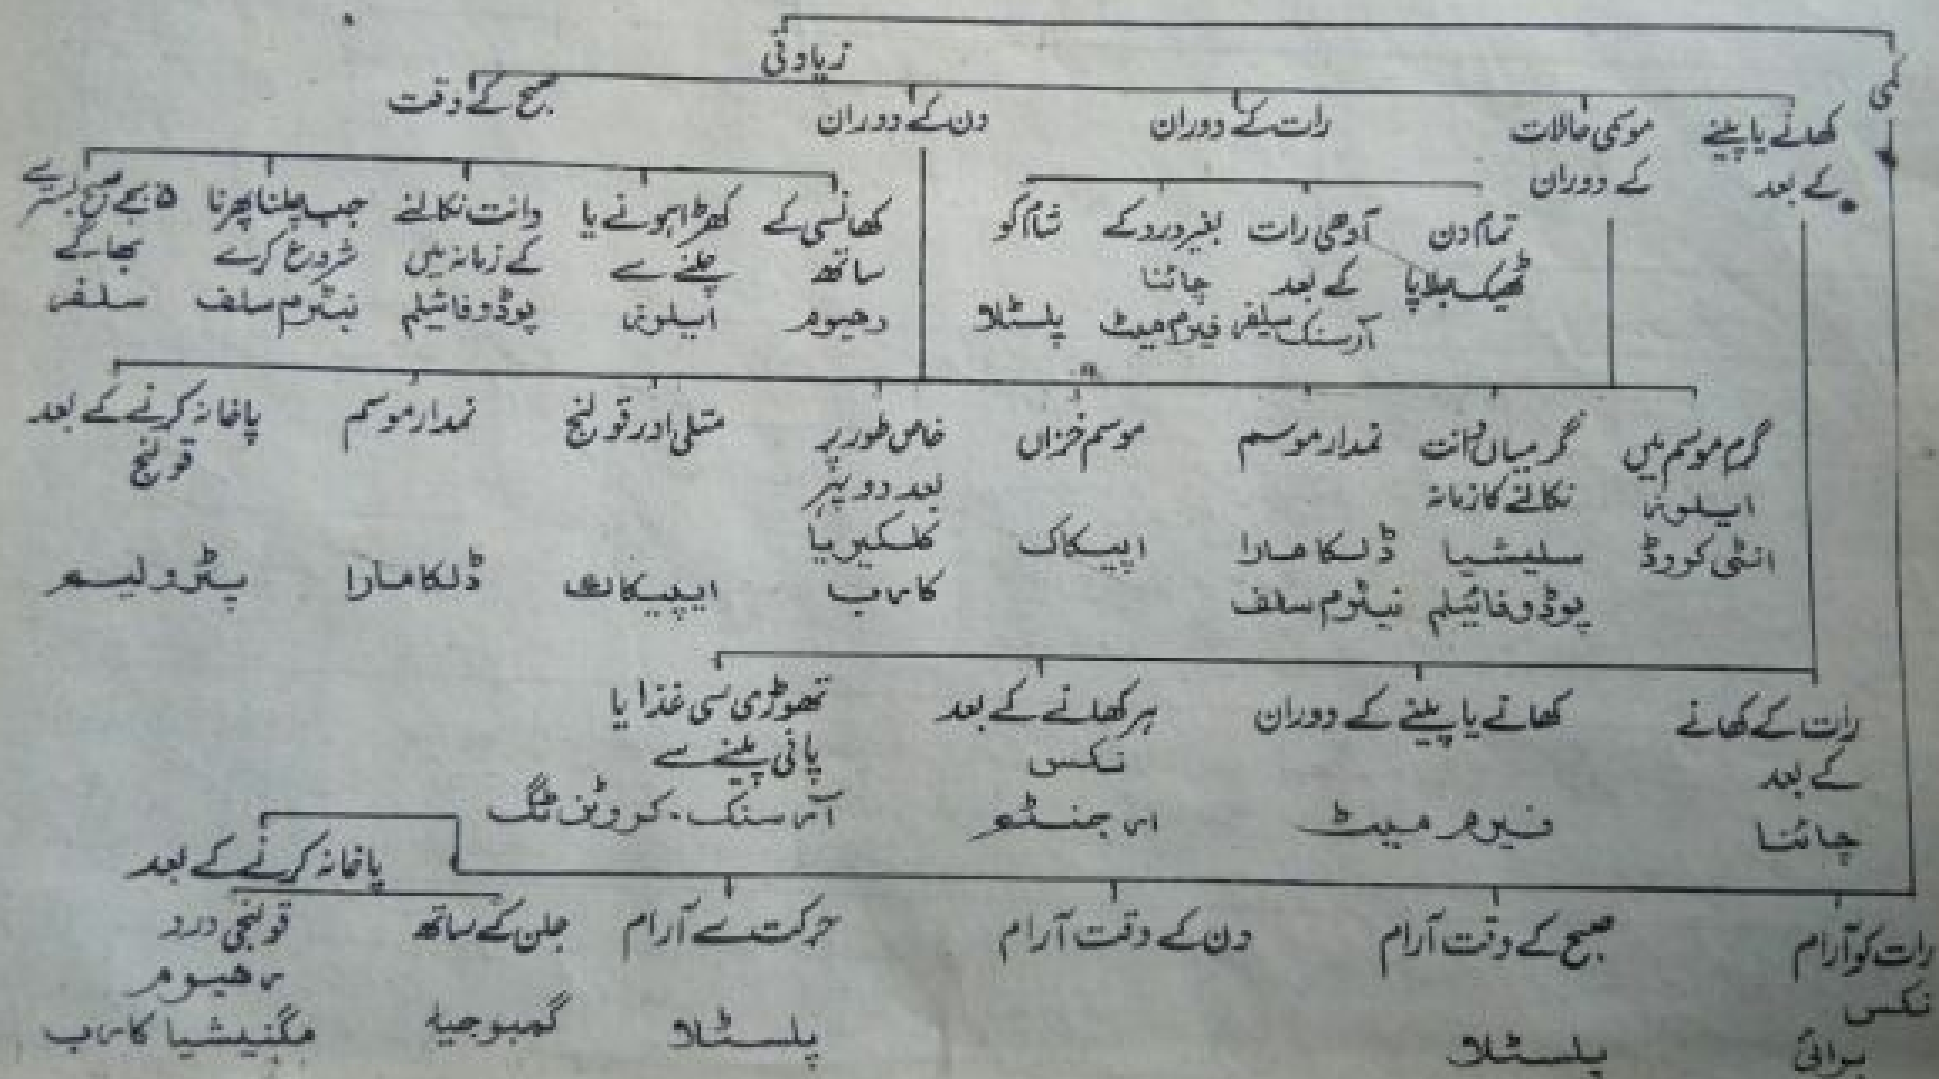 زیادتی
کمی
کھانے یا پینے کے بعد
موسمی حالات کے دوران
رات کے دوران
دن کے دوران
صبح کے وقت
تمام دن ٹھیک
آدھی رات کے بعد
آرسنک سلفر
بغیر درد کے
چائنا
فیرم میٹ
شام کو
پلسٹلا
کھانسی کے ساتھ
رھیوم
کھڑا ہونے یا چلنے سے
ایلونہ
دانت نکالنے کے زمانہ میں
پوڈوفائیلم
جب چلنا پھرنا شروع کرے
نیٹرم سلف
۵ بجے صبح بستر سے بھاگے
سلفر
گرم موسم میں
ایلونہ
انٹی کروڈ
گرمیاں دانت نکالنے کا زمانہ
سلیشیا
پوڈوفائیلم
نمدار موسم
ڈلکامارا
نیٹرم سلف
موسم خزاں
اپیکاک
خاص طور پر بعد دوپہر
کلکیریا کارب
متلی اور قولنج
ایپیکاک
نمدار موسم
ڈلکامارا
پاخانہ کرنے کے بعد قولنج
پٹرولیم
رات کے کھانے کے بعد
چائنا
کھانے یا پینے کے دوران
فیرم میٹ
ہر کھانے کے بعد
نکس
ارجنٹم
تھوڑی سی غذا یا پانی پینے سے
آرسنک۔ کروٹن ٹگ
رات کو آرام
نکس
برائی
صبح کے وقت آرام
پلسٹلا
دن کے وقت آرام
حرکت سے آرام
پلسٹلا
پاخانہ کرنے کے بعد
جلن کے ساتھ
گمبوجیہ
قولنجی درد
رھیوم
مگنیشیا کارب